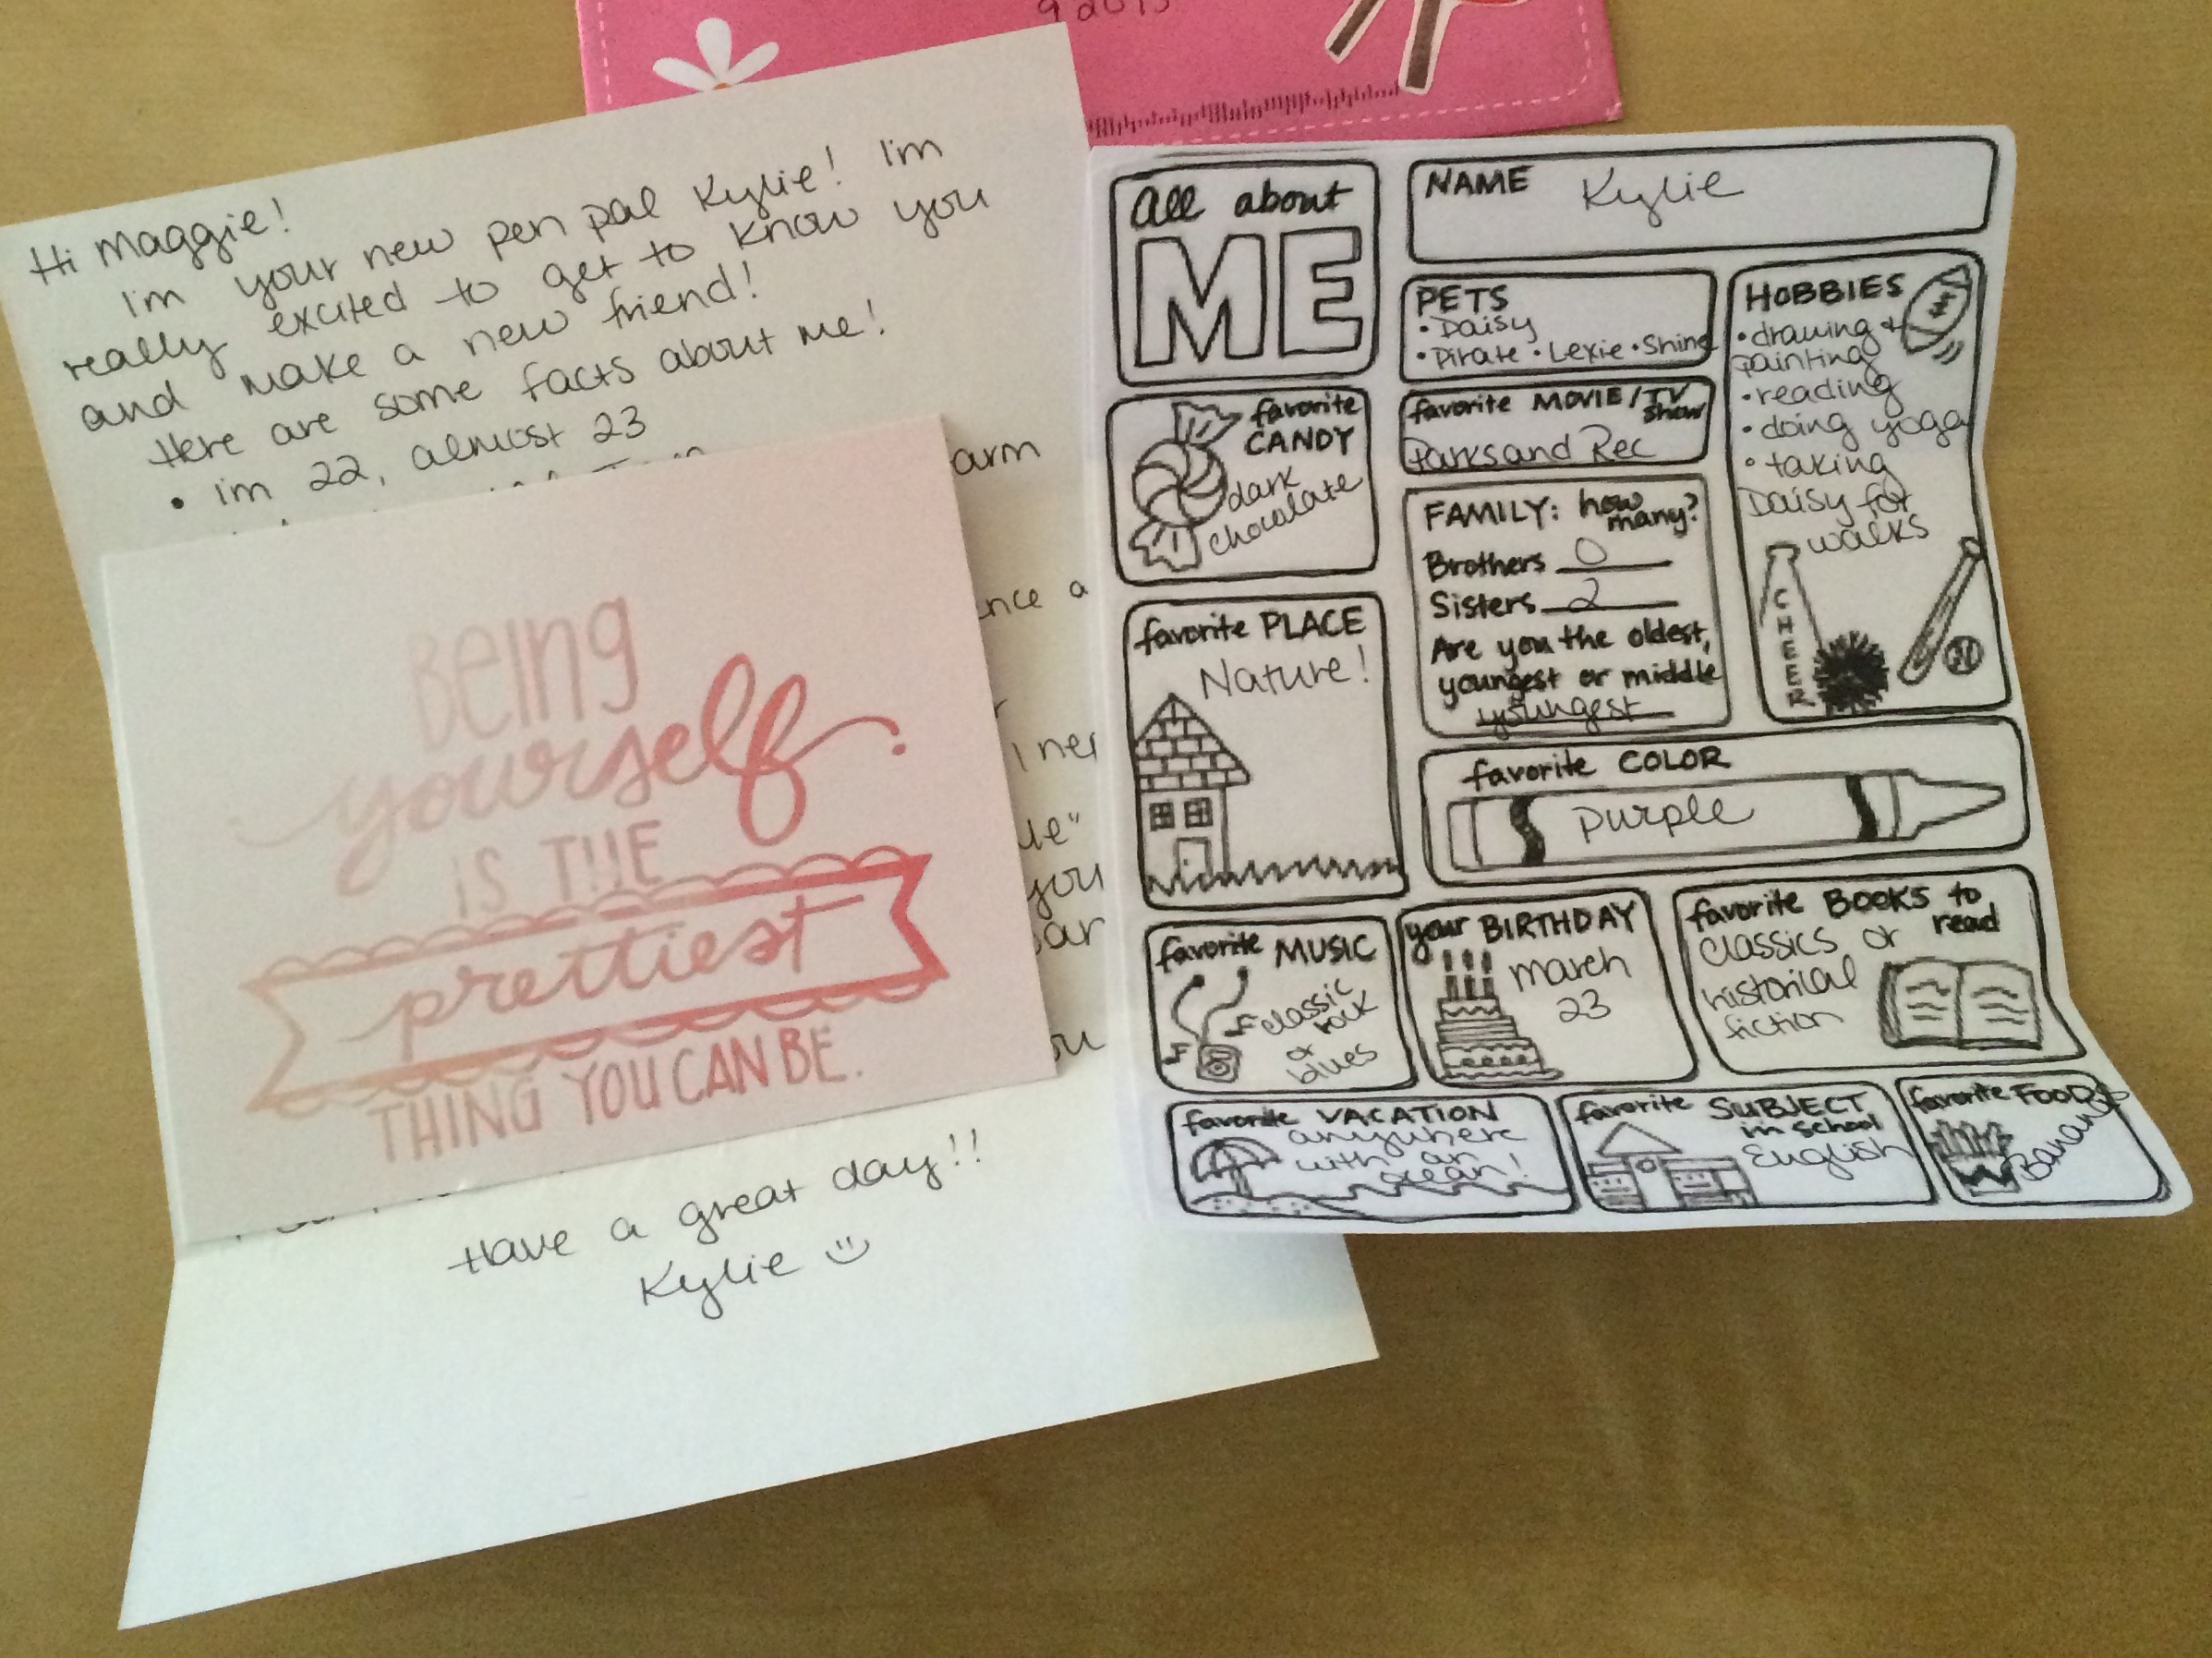 Hi Maggie!
I'm your new pen pal Kylie! I'm
really excited to get to know you
and make a new friend!
Here are some facts about me!
• im 22, almost 23
arm
nce a
you
Have a great day!!
Kylie
Being
yourself
IS THE
prettiest
THING YOU CAN BE.
all about
ME
NAME Kylie
PETS
• Daisy
• Pirate • Lexie • Shine
HOBBIES
• drawing &
painting
• reading
• doing yoga
• taking
Daisy for
walks
CHEER
favorite
CANDY
dark
chocolate
favorite MOVIE/TV
show
Parks and Rec
FAMILY: how
many?
Brothers 0
Sisters 2
Are you the oldest,
youngest or middle
youngest
favorite PLACE
Nature!
favorite COLOR
purple
favorite MUSIC
classic
rock
or
blues
your BIRTHDAY
march
23
favorite BOOKS to
read
classics or
historical
fiction
favorite VACATION
anywhere
with an
ocean!
favorite SUBJECT
in school
English
favorite FOOD